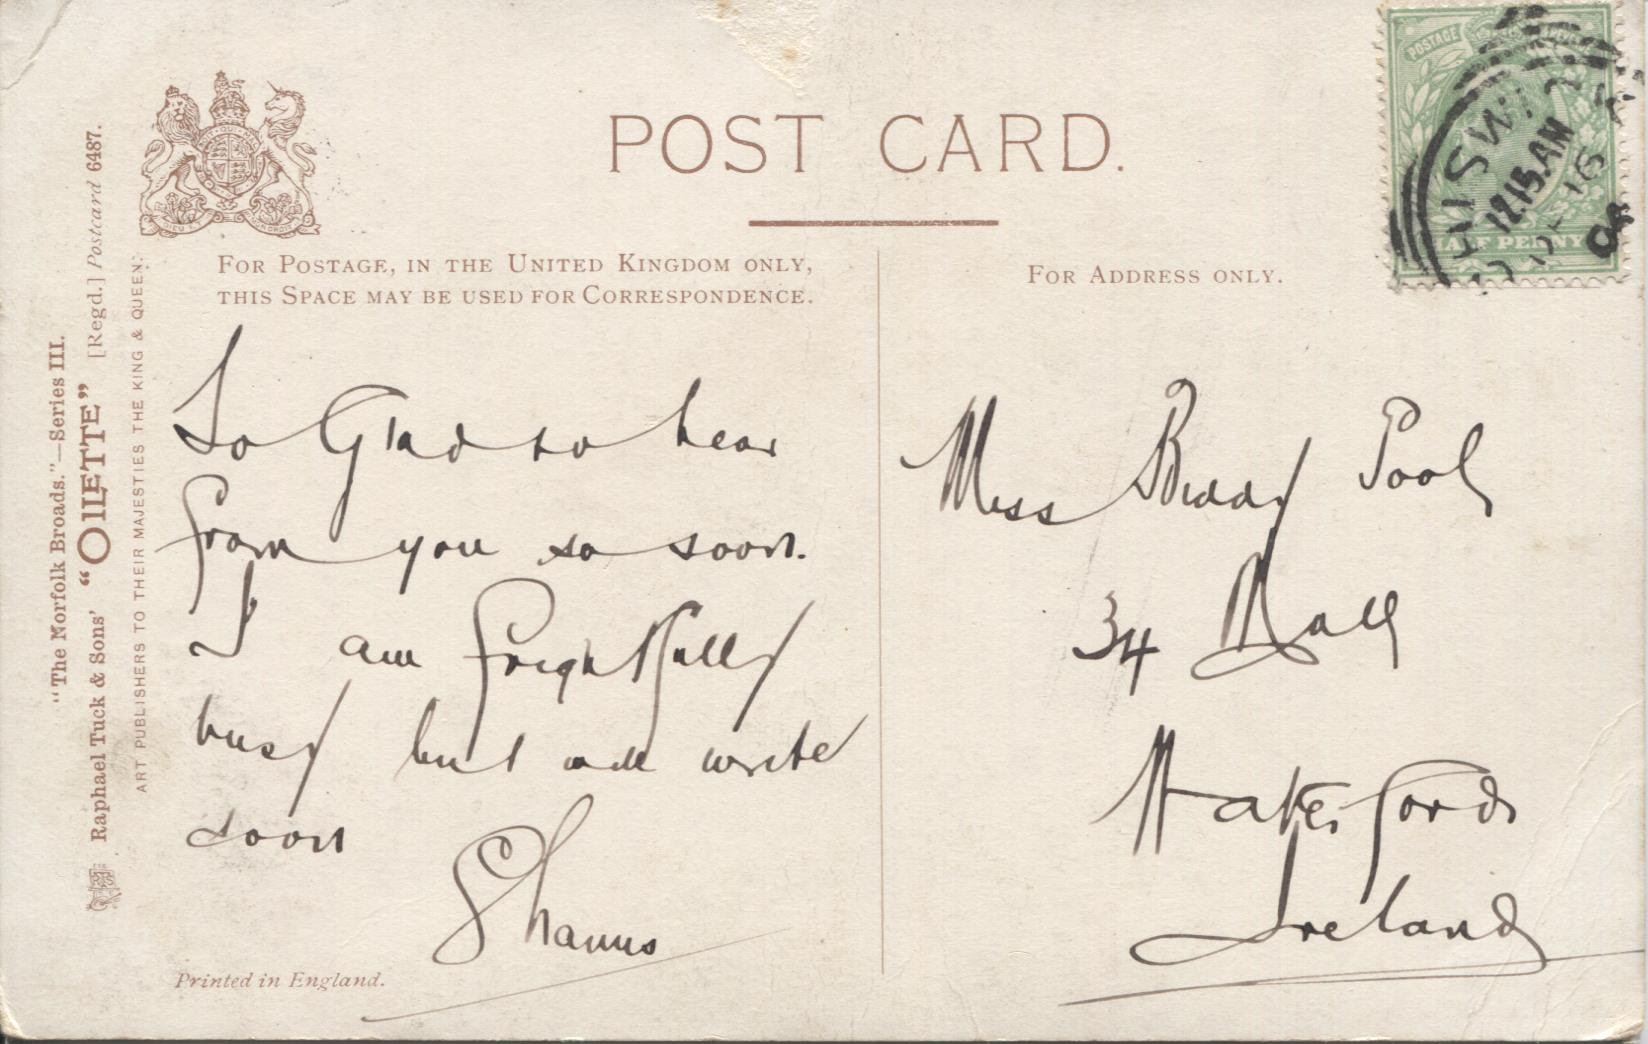 POST CARD.
FOR POSTAGE, IN THE UNITED KINGDOM ONLY,
THIS SPACE MAY BE USED FOR CORRESPONDENCE.
FOR ADDRESS ONLY.
"The Norfolk Broads."—Series III.
Raphael Tuck & Sons' "OILETTE" [Regd.] Postcard 6487.
ART PUBLISHERS TO THEIR MAJESTIES THE KING & QUEEN.
So Glad to hear
from you so soon.
I am frightfully
busy but will write
soon
Miss Biddy Pool
34 Mall
Waterford
Ireland
Printed in England.
POSTAGE
HALF PENNY
CHISW
12.15.AM
16
08